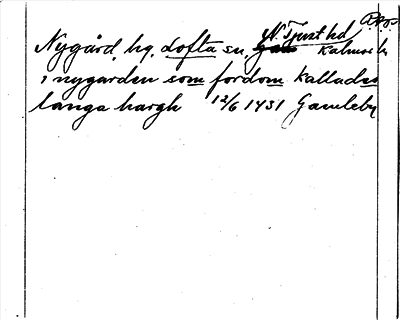 N. Tjust hd
Nygård, hg. Lofta sn, Kalmar l.
i nygarden som fordom kallades
langa hargh 12/6 1431 Gamleby